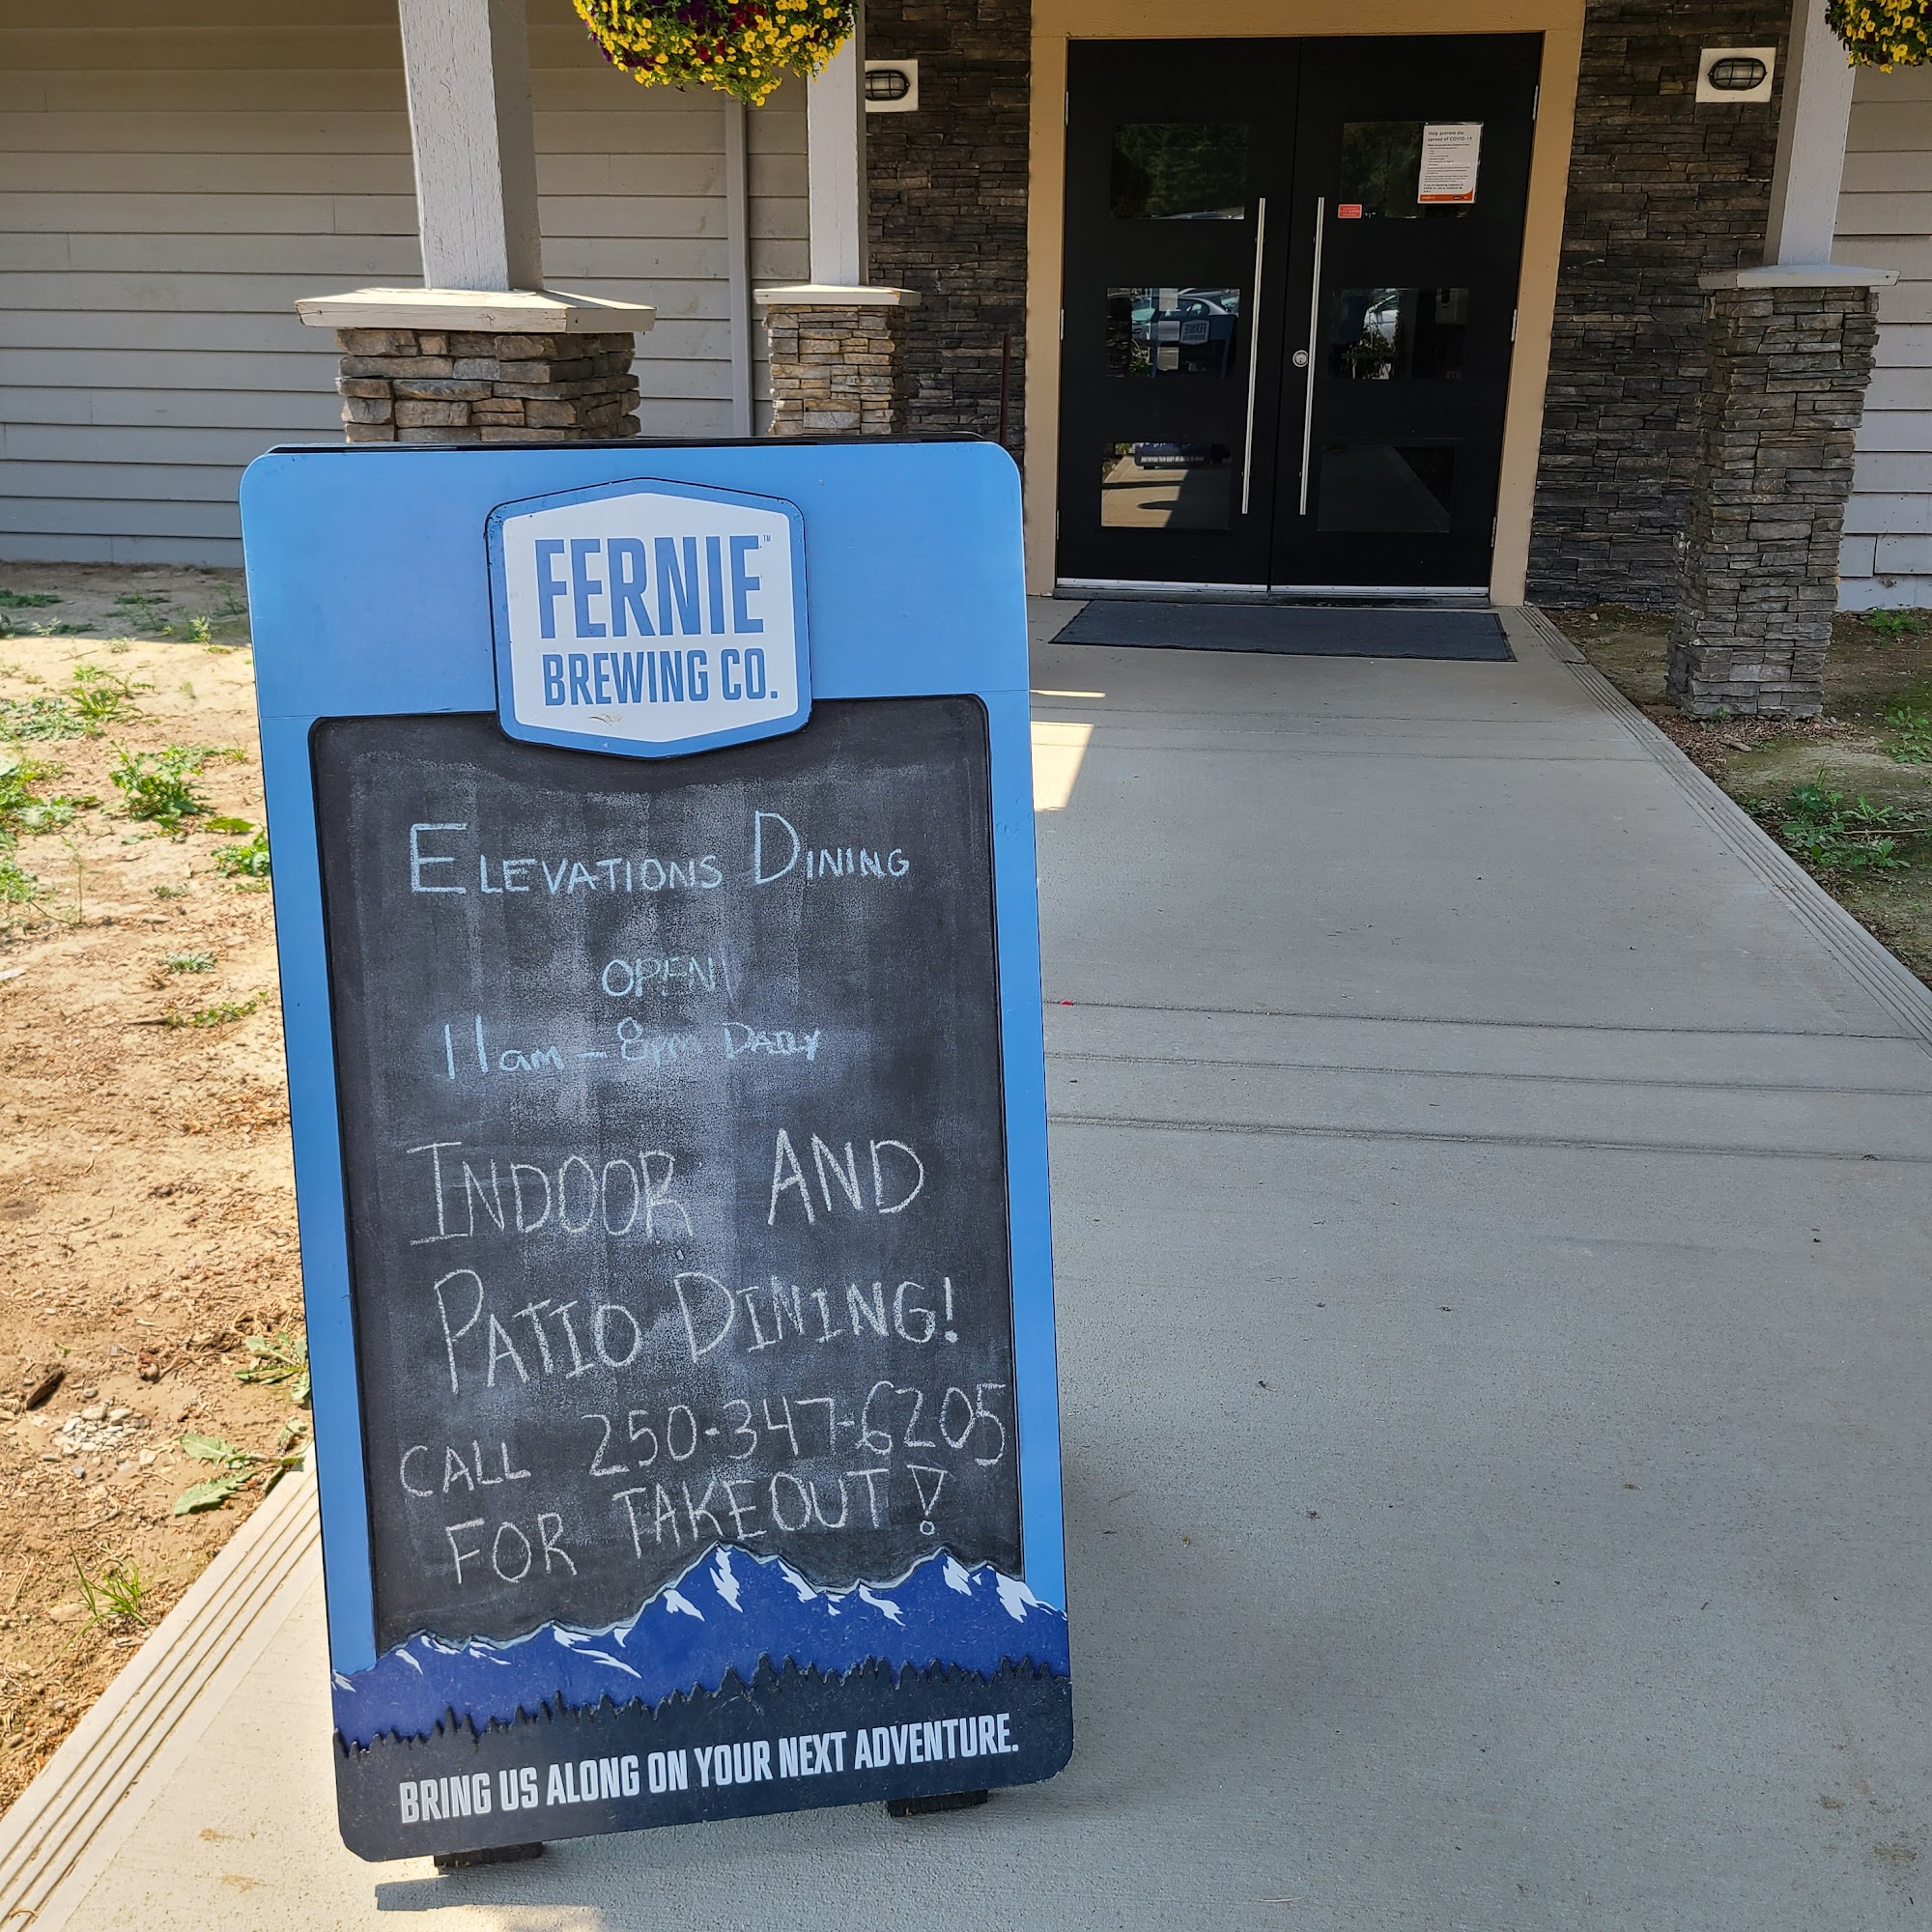 Help prevent the
spread of COVID-19
FERNIE™
BREWING CO.
ELEVATIONS DINING
OPEN
11am - 8pm DAILY
INDOOR AND
PATIO DINING!
CALL 250-347-6205
FOR TAKEOUT!
BRING US ALONG ON YOUR NEXT ADVENTURE.